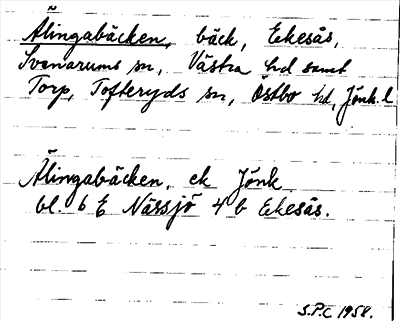 Älingabäcken, bäck, Ekesås,
Svenarums sn, Västra hd samt
Torp, Tofteryds sn, Östbo hd, Jönk. l
Älingabäcken, ek Jönk
bl. 6 E Nässjö 4 b Ekesås.
S.P.C 1958.